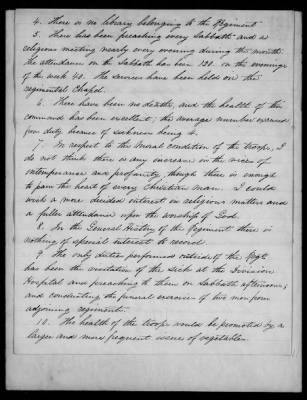 4. There is no library belonging to the Regiment
5. There has been preaching every Sabbath and a
religious meeting nearly every evening during the month.
The attendance on the Sabbath has been 120. on the evenings
of the week 40. The services have been held on the
regimental Chapel.
6. There have been no deaths, and the health of the
command has been excellent; the average number excused
from duty because of sickness being 4.
7. In respect to the moral condition of the troops, I
do not think there is any increase in the vices of
intemperance and profanity, though there is enough
to pain the heart of every Christian man. I could
wish a more decided interest in religious matters and
a fuller attendance upon the worship of God.
8. In the General History of the Regiment there is
nothing of special interest to record.
9. The only duties performed outside of the Regt
has been the visitation of the sick at the Division
Hospital and preaching to them on Sabbath afternoons;
and conducting the funeral exercises of two men from
adjoining regiments.
10. The health of the troops would be promoted by a
larger and more frequent issue of vegetables.